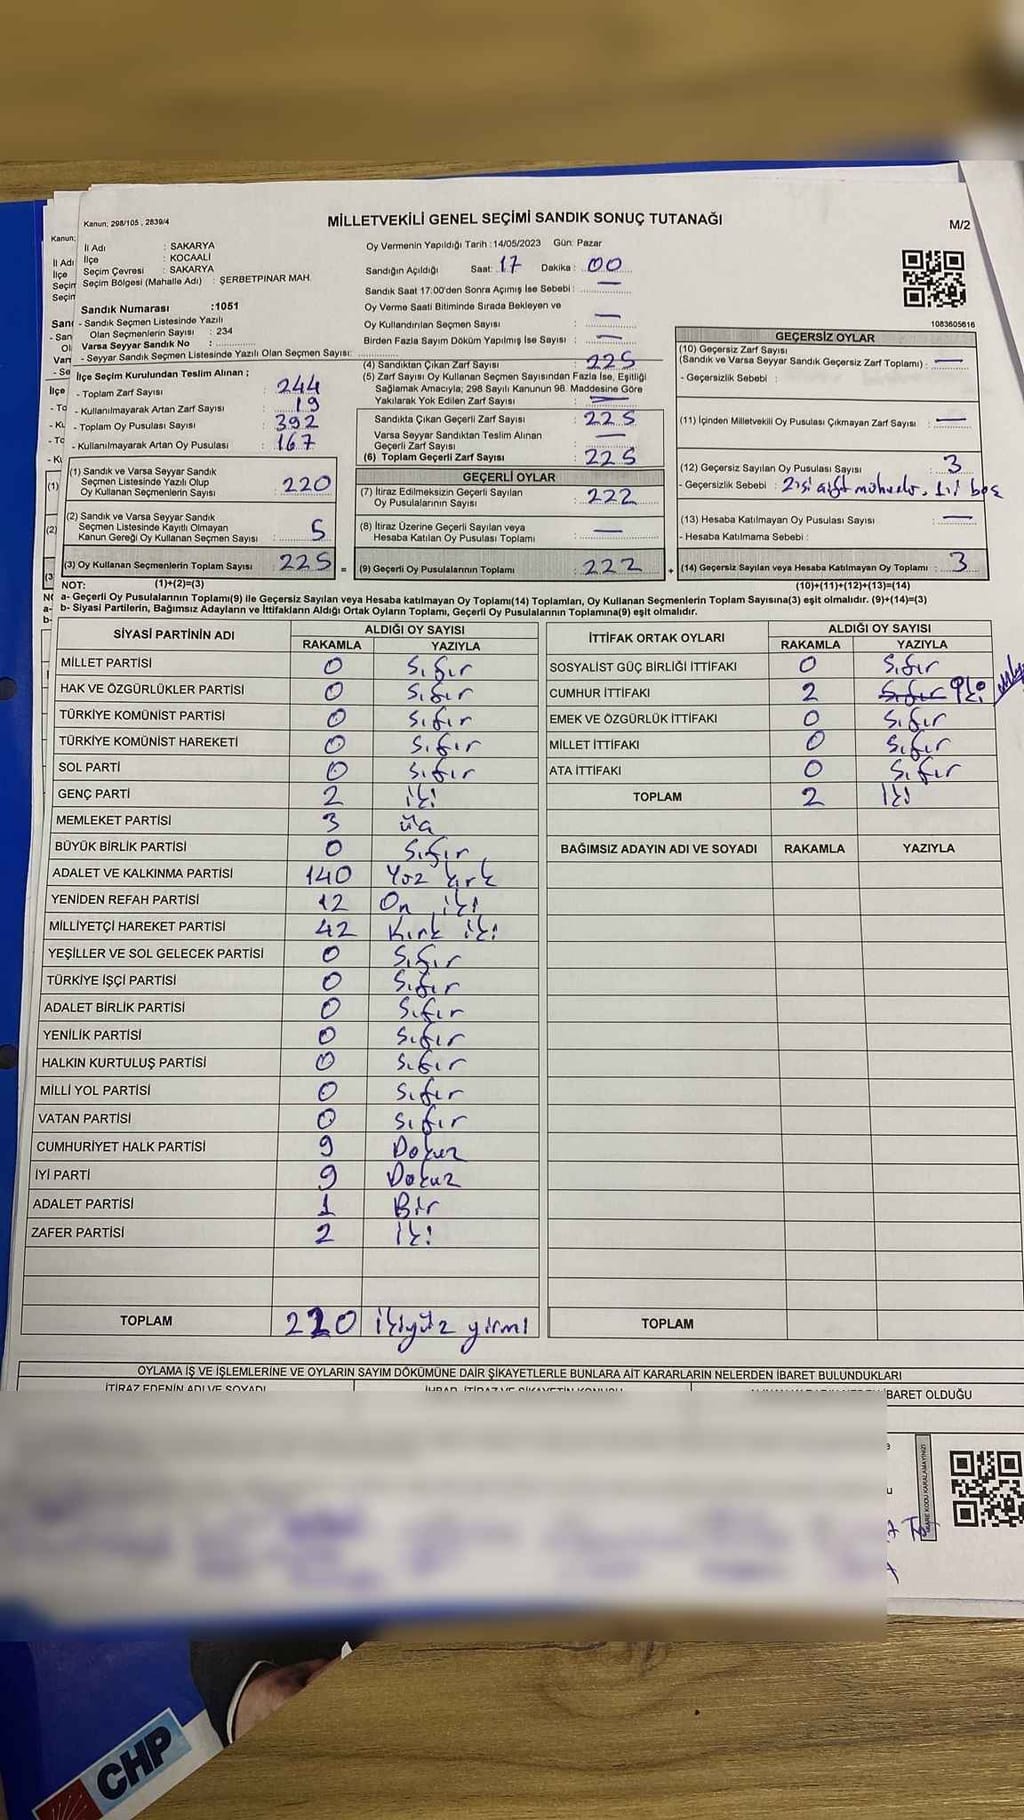 Kanun; 298/105 , 2839/4
MİLLETVEKİLİ GENEL SEÇİMİ SANDIK SONUÇ TUTANAĞI
M/2
İl Adı : SAKARYA
İlçe : KOCAALİ
Seçim Çevresi : SAKARYA
Seçim Bölgesi (Mahalle Adı) : ŞERBETPINAR MAH.
Sandık Numarası :1051
- Sandık Seçmen Listesinde Yazılı
Olan Seçmenlerin Sayısı : 234
Varsa Seyyar Sandık No :
- Seyyar Sandık Seçmen Listesinde Yazılı Olan Seçmen Sayısı:
Oy Vermenin Yapıldığı Tarih : 14/05/2023 Gün: Pazar
Sandığın Açıldığı Saat: 17 Dakika : 00
Sandık Saat 17:00'den Sonra Açımış İse Sebebi : —
Oy Verme Saati Bitiminde Sırada Bekleyen ve
Oy Kullandırılan Seçmen Sayısı : —
Birden Fazla Sayım Döküm Yapılmış İse Sayısı : —
1083605616
İlçe Seçim Kurulundan Teslim Alınan ;
- Toplam Zarf Sayısı : 244
- Kullanılmayarak Artan Zarf Sayısı : 19
- Toplam Oy Pusulası Sayısı : 392
- Kullanılmayarak Artan Oy Pusulası : 167
(1) Sandık ve Varsa Seyyar Sandık
Seçmen Listesinde Yazılı Olup
Oy Kullanan Seçmenlerin Sayısı : 220
(2) Sandık ve Varsa Seyyar Sandık
Seçmen Listesinde Kayıtlı Olmayan
Kanun Gereği Oy Kullanan Seçmen Sayısı : 5
(3) Oy Kullanan Seçmenlerin Toplam Sayısı : 225 =
(4) Sandıktan Çıkan Zarf Sayısı : 225
(5) Zarf Sayısı Oy Kullanan Seçmen Sayısından Fazla İse, Eşitliği
Sağlamak Amacıyla; 298 Sayılı Kanunun 98. Maddesine Göre
Yakılarak Yok Edilen Zarf Sayısı : —
Sandıkta Çıkan Geçerli Zarf Sayısı : 225
Varsa Seyyar Sandıktan Teslim Alınan
Geçerli Zarf Sayısı : —
(6) Toplam Geçerli Zarf Sayısı : 225
GEÇERLİ OYLAR
(7) İtiraz Edilmeksizin Geçerli Sayılan
Oy Pusulalarının Sayısı : 222
(8) İtiraz Üzerine Geçerli Sayılan veya
Hesaba Katılan Oy Pusulası Toplamı : —
(9) Geçerli Oy Pusulalarının Toplamı : 222 +
GEÇERSİZ OYLAR
(10) Geçersiz Zarf Sayısı
(Sandık ve Varsa Seyyar Sandık Geçersiz Zarf Toplamı) : —
- Geçersizlik Sebebi :
(11) İçinden Milletvekili Oy Pusulası Çıkmayan Zarf Sayısı : —
(12) Geçersiz Sayılan Oy Pusulası Sayısı : 3
- Geçersizlik Sebebi : 2'si çift mühür, 1'i boş
(13) Hesaba Katılmayan Oy Pusulası Sayısı : —
- Hesaba Katılmama Sebebi :
(14) Geçersiz Sayılan veya Hesaba Katılmayan Oy Toplamı : 3
NOT: (1)+(2)=(3) (10)+(11)+(12)+(13)=(14)
a- Geçerli Oy Pusulalarının Toplamı(9) ile Geçersiz Sayılan veya Hesaba katılmayan Oy Toplamı(14) Toplamları, Oy Kullanan Seçmenlerin Toplam Sayısına(3) eşit olmalıdır. (9)+(14)=(3)
b- Siyasi Partilerin, Bağımsız Adayların ve İttifakların Aldığı Ortak Oyların Toplamı, Geçerli Oy Pusulalarının Toplamına(9) eşit olmalıdır.
SİYASİ PARTİNİN ADI ALDIĞI OY SAYISI
RAKAMLA YAZIYLA
MİLLET PARTİSİ 0 Sıfır
HAK VE ÖZGÜRLÜKLER PARTİSİ 0 Sıfır
TÜRKİYE KOMÜNİST PARTİSİ 0 Sıfır
TÜRKİYE KOMÜNİST HAREKETİ 0 Sıfır
SOL PARTİ 0 Sıfır
GENÇ PARTİ 2 iki
MEMLEKET PARTİSİ 3 üç
BÜYÜK BİRLİK PARTİSİ 0 Sıfır
ADALET VE KALKINMA PARTİSİ 140 Yüz kırk
YENİDEN REFAH PARTİSİ 12 On iki
MİLLİYETÇİ HAREKET PARTİSİ 42 Kırk iki
YEŞİLLER VE SOL GELECEK PARTİSİ 0 Sıfır
TÜRKİYE İŞÇİ PARTİSİ 0 Sıfır
ADALET BİRLİK PARTİSİ 0 Sıfır
YENİLİK PARTİSİ 0 Sıfır
HALKIN KURTULUŞ PARTİSİ 0 Sıfır
MİLLİ YOL PARTİSİ 0 Sıfır
VATAN PARTİSİ 0 Sıfır
CUMHURİYET HALK PARTİSİ 9 Dokuz
İYİ PARTİ 9 Dokuz
ADALET PARTİSİ 1 Bir
ZAFER PARTİSİ 2 iki
TOPLAM 220 ikiyüz yirmi
İTTİFAK ORTAK OYLARI ALDIĞI OY SAYISI
RAKAMLA YAZIYLA
SOSYALİST GÜÇ BİRLİĞİ İTTİFAKI 0 Sıfır
CUMHUR İTTİFAKI 2 Sıfır iki
EMEK VE ÖZGÜRLÜK İTTİFAKI 0 Sıfır
MİLLET İTTİFAKI 0 Sıfır
ATA İTTİFAKI 0 Sıfır
TOPLAM 2 iki
BAĞIMSIZ ADAYIN ADI VE SOYADI RAKAMLA YAZIYLA
TOPLAM
OYLAMA İŞ VE İŞLEMLERİNE VE OYLARIN SAYIM DÖKÜMÜNE DAİR ŞİKAYETLERLE BUNLARA AİT KARARLARIN NELERDEN İBARET BULUNDUKLARI
İTİRAZ EDENİN ADI VE SOYADI
BARET OLDUĞU
KARE KODU KARALAMAYINIZ!
CHP